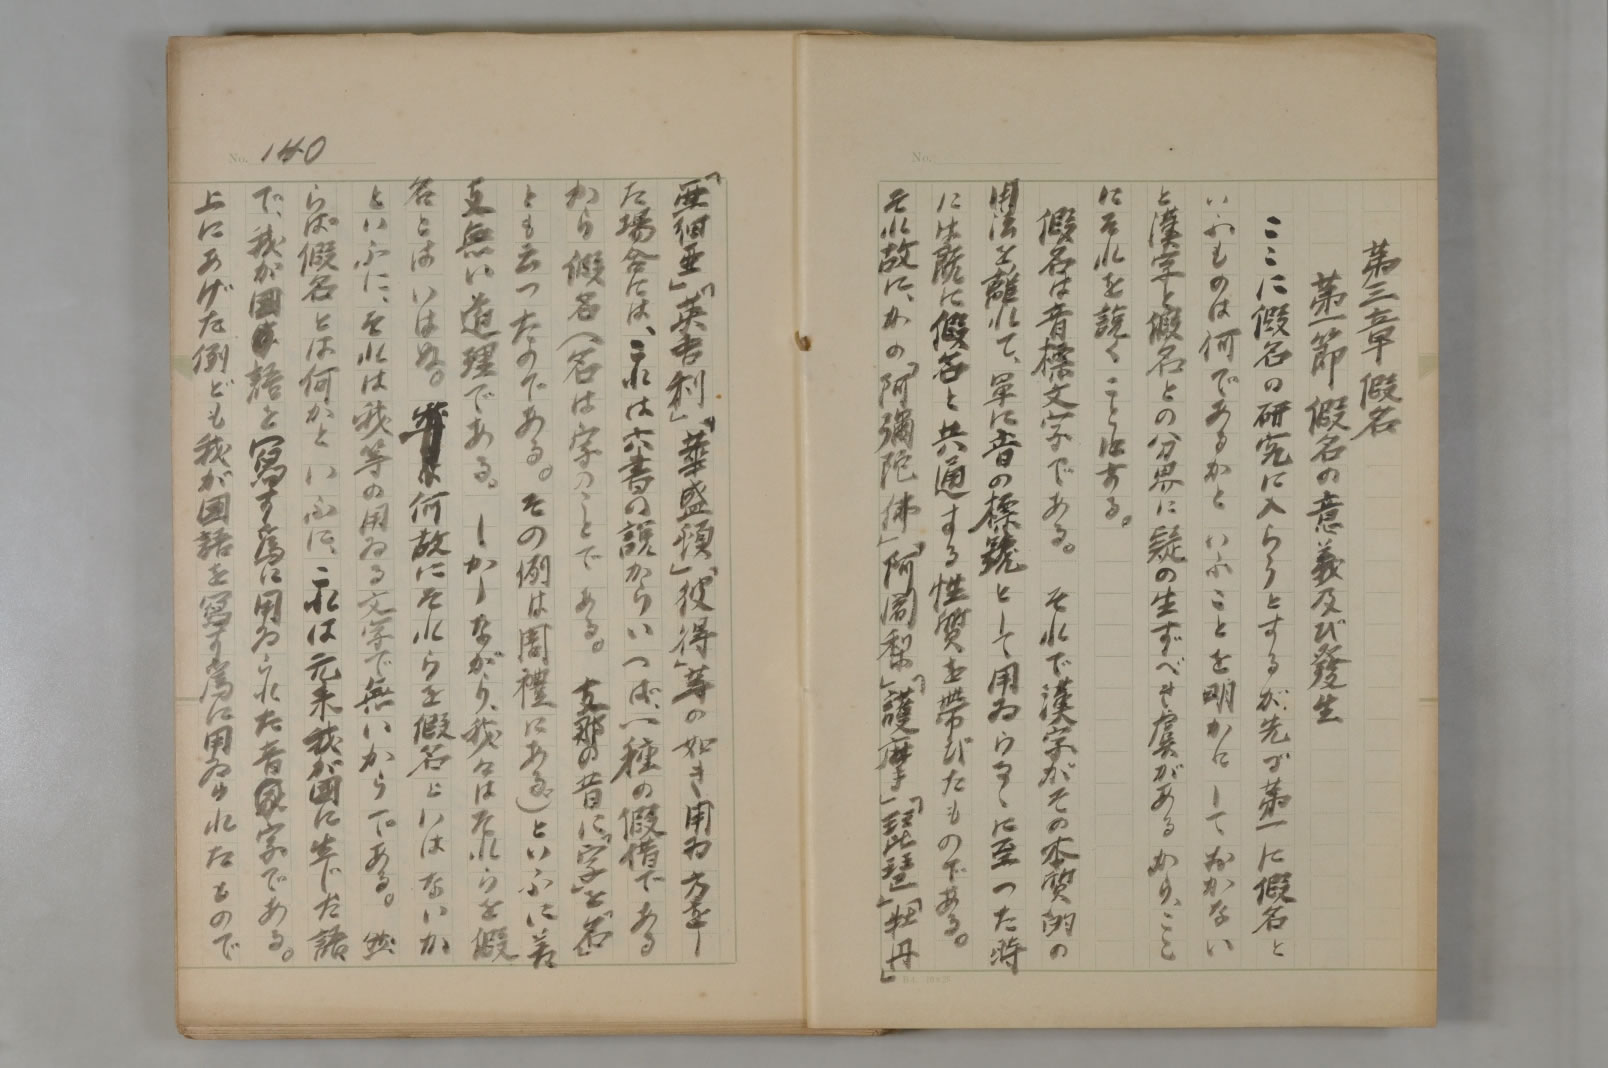 第三章 假名
第一節 假名の意義及び發生
ここに假名の研究に入らうとするが、先づ第一に假名と
いふものは何であるかといふことを明かにしておかない
と漢字と假名との分界に疑の生ずべき虞があるから、ここ
にそれを說くことにする。
假名は音標文字である。それで漢字がその本質的の
用法を離れて、單に音の標號として用ゐらるゝに至つた時
には旣に假名と共通する性質を帶びたものである。
それ故に、かの「阿彌陀佛」「阿闍梨」「護摩」「琵琶」「牡丹」
No.
No. 140
「亜細亜」「英吉利」「華盛頓」「彼得」等の如き用ゐ方をし
た場合には、これは六書の說からいつば一種の假借である
から假名(名は字のことである。支那の昔に「字」を「名」
とも云つたのである。その例は周禮にある)といふに差
支無い道理である。しかしながら、我々はそれらを假
名とはいはぬ。何故にそれらを假名といはないか
といふに、それは我等の用ゐる文字で無いからである。然
らば假名とは何かといふに、これは元來我が國に生じた語
で、我が國語を寫す爲に用ゐられた音字である。
上にあげた例ども我が國語を寫す爲に用ゐられたもので